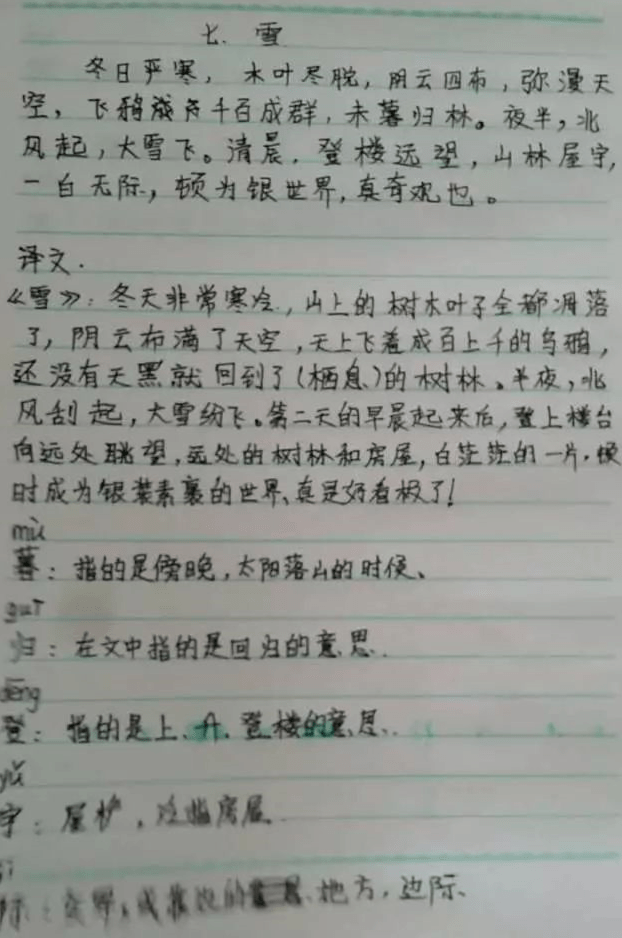 七. 雪
冬日严寒, 木叶尽脱, 阴云四布, 弥漫天
空, 飞鸦千百成群, 未暮归林。夜半, 北
风起, 大雪飞。清晨, 登楼远望, 山林屋宇,
一白无际, 顿为银世界, 真奇观也。
译文.
《雪》: 冬天非常寒冷, 山上的树木叶子全都凋落
了, 阴云布满了天空, 天上飞着成百上千的乌鸦,
还没有天黑就回到了(栖息)的树林。半夜, 北
风刮起, 大雪纷飞。第二天的早晨起来后, 登上楼台
向远处眺望, 远处的树林和房屋, 白茫茫的一片.
时成为银装素裹的世界、真是好看极了!
mù
暮: 指的是傍晚, 太阳落山的时候、
guī
归: 在文中指的是回归的意思.
dēng
登: 指的是上、升、登楼的意思.
yǔ
宇: 屋, 泛指房屋
际: 地方, 边际、